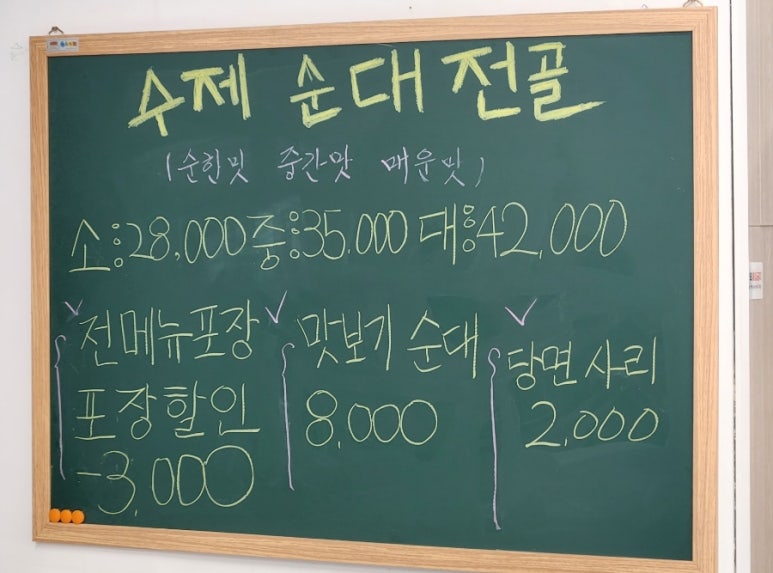 수제 순대 전골
(순한맛 중간맛 매운맛)
소:28,000 중:35,000 대:42,000
✓전메뉴포장
포장할인
-3,000
✓맛보기 순대
8,000
✓당면사리
2,000